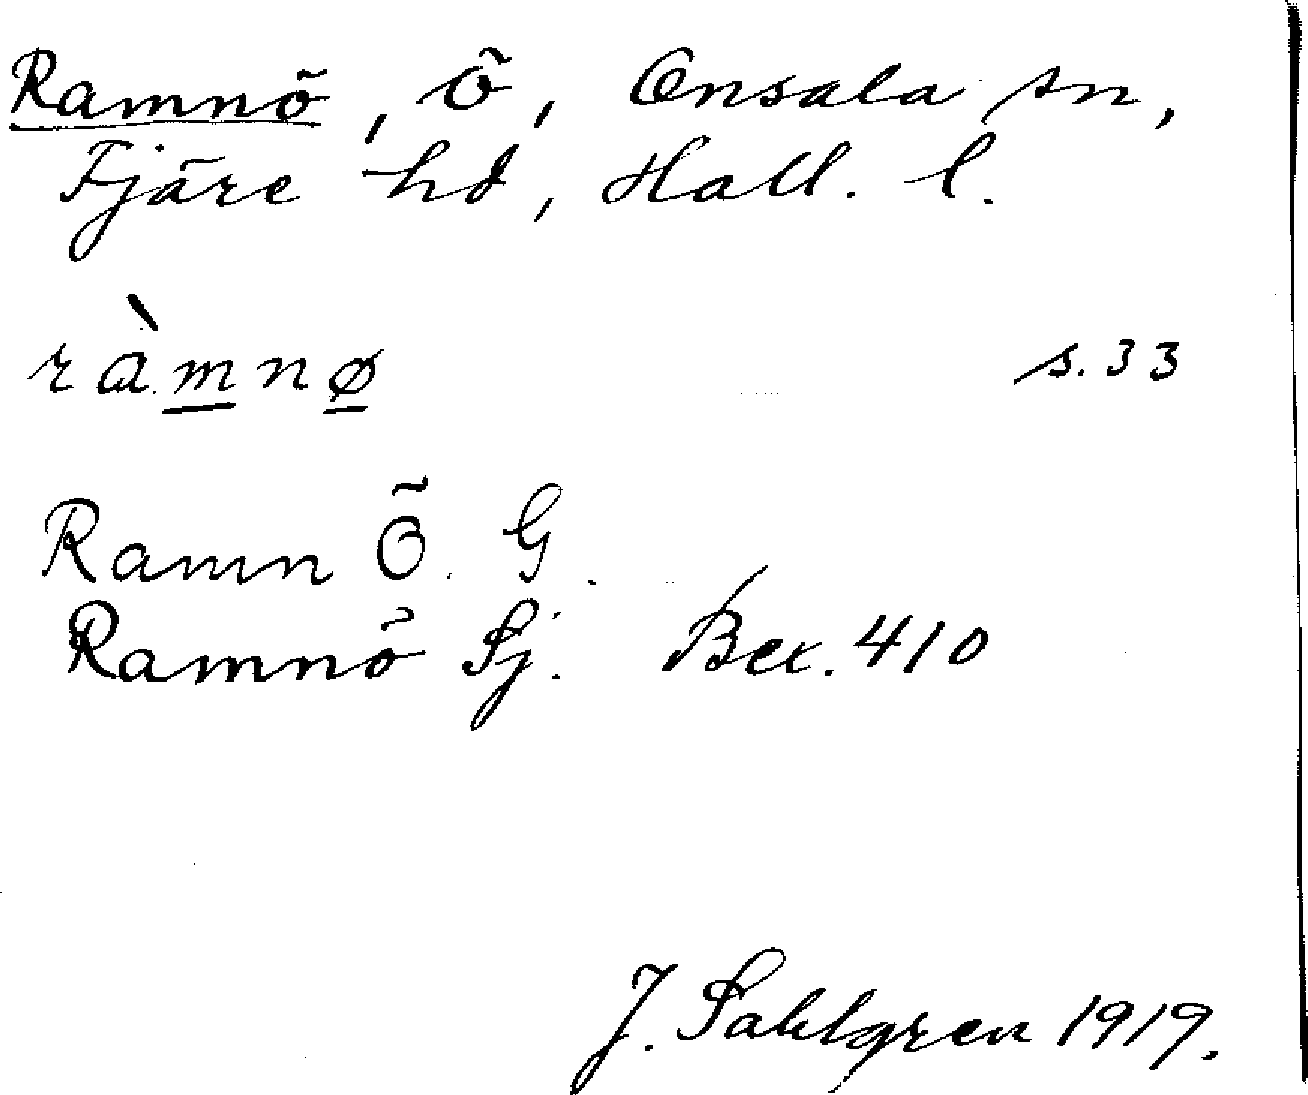 Ramnö, ö, Onsala sn,
Fjäre hd, Hall. l.
ràmnø s.33
Ramn Ö. G.
Ramnö Sj. Bex. 410
J. Sahlgren 1919.